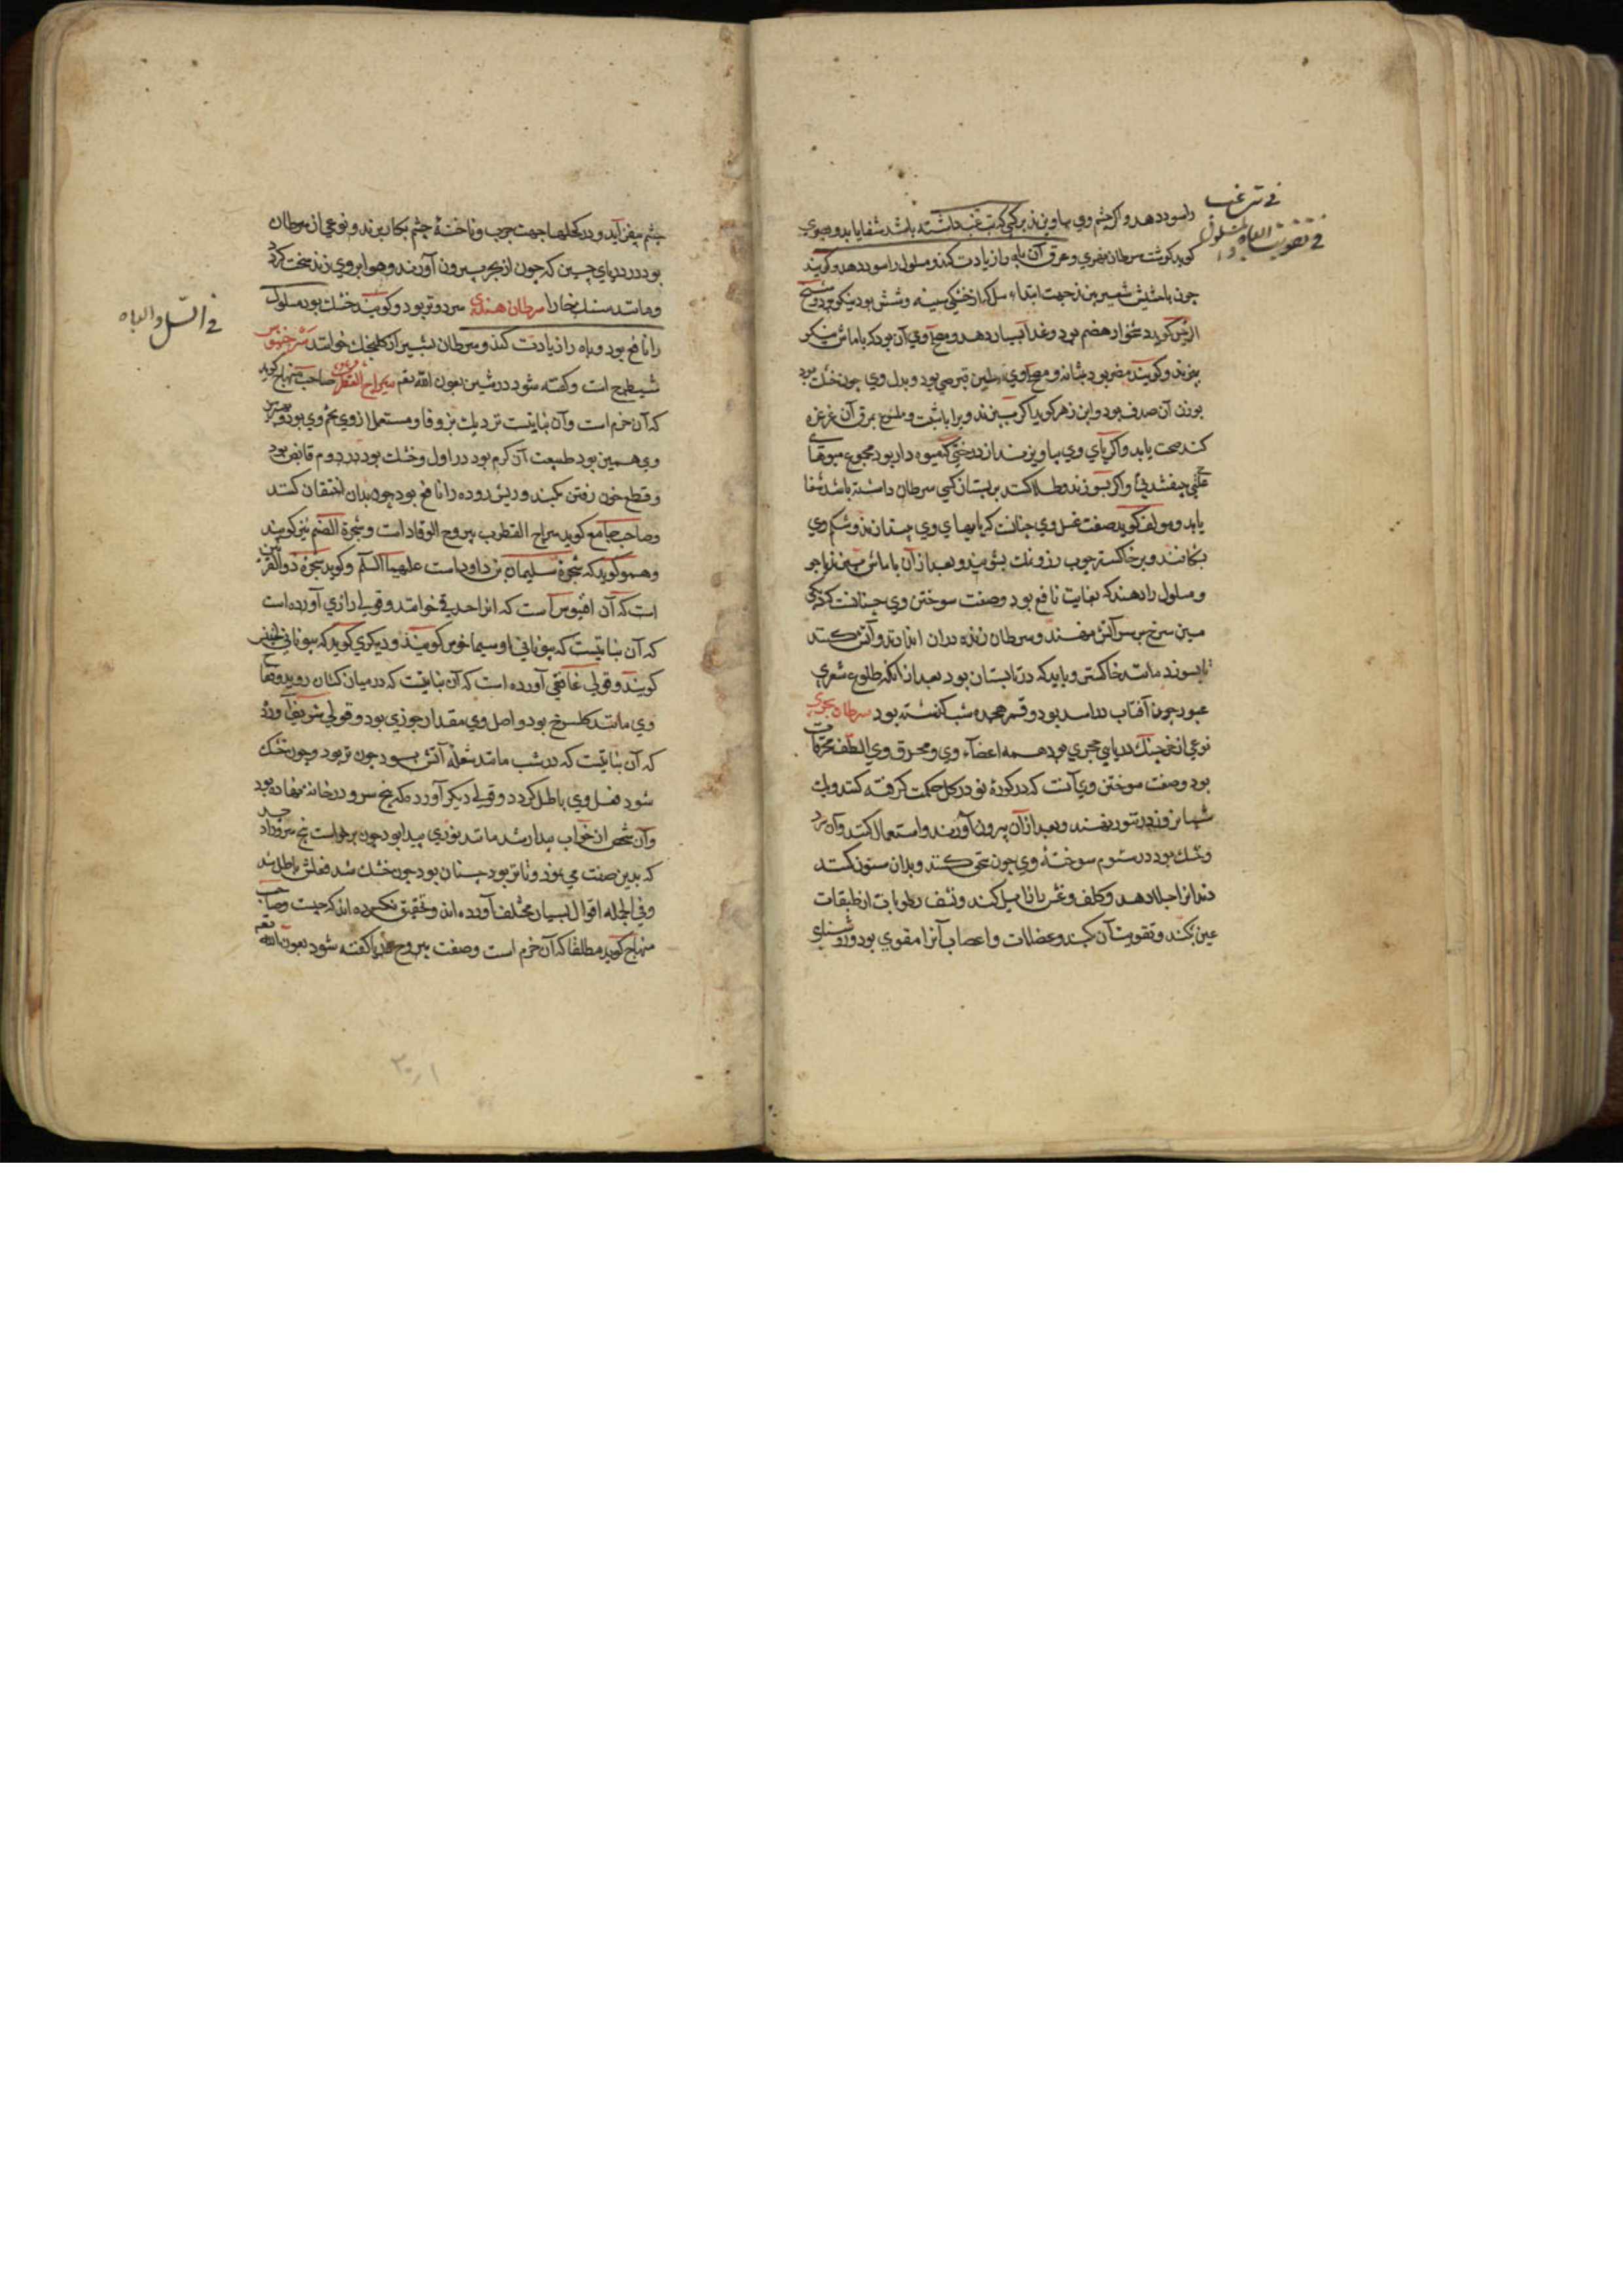 في تب غب
في تقويت الباه
را سود دهد و اگر چشم وی بیاویزند بر کسی که تب غب داشته باشد شفا یابد و بصری
گوید گوشت سرطان نهری و مرق آن باه را زیادت کند و مسلول را سود دهد و گویند
چون با شیر بپزند جهت ابتداء سل که از خشکی سینه و شش بود نیکو بود و شیخ
الرئیس گوید دشخوار هضم بود و غذا بسیار دهد و مصلح وی آن بود که با ماش نیکو
بپزند و گویند مضر بود بمثانه و مصلح وی طین قبرصی بود و بدل وی چون خشک بود
بوزن آن صدف بود و ابن زهر گوید اگر بپزند ویرا با شبت و بمرق آن غرغره
کند صحت یابد و اگر پای وی بیاویزند از درختی که میوه دار بود مجموع میوهای
بیفتد و اگر بسوزند و طلا کنند بر پستان کسی سرطان داشته باشد شفا
یابد و مولف گوید صفت غسل وی چنانست که پایهای وی بستانند و شکم وی
بشکافند و بر خاکستر چوب رز و نمک بشویند و بعد از آن با ماش بپزند یا جو
و مسلول را دهند که بغایت نافع بود و صفت سوختن وی چنانست که دیگی
مسین سرخ بر سر آتش نهند و سرطان زنده در آن اندازند و آتش کنند
تا بسوزد مانند خاکستر و باید که در تابستان بود بعد از آنکه طلوع شعری
عبور چون آفتاب در اسد بود و قمر هجده شب گذشته بود سرطان بحری
نوعی از خرچنگ دریایی حجری بود همه اعضاء وی و محرق وی الطف محرقات
بود و صفت سوختن وی آنست که در کوزه نو در گل حکمت گرفته کنند و یک
شبانروز در تنور نهند و بعد از آن بیرون آورند و استعمال کنند و آن سرد
و خشک بود در سوم سوخته وی چون سحق کنند و بدان سنون کنند
دندانرا جلا دهد و کلف و نمش را زایل کند و نشف رطوبات از طبقات
عین بکند و تقویت آن کند و عضلات و اعصاب آنرا مقوی بود و روشنایی
چشم بیفزاید و در کحلها جهت جرب و ناخنه چشم بکار برند و نوعی از سرطان
بود در دریای چین که چون از بحر بیرون آورند و هوا بر وی زند سخت گردد
و مانند سنگ بخارا سرطان هندی سرد و تر بود و گویند خشک بود مسلول
في السل و الباه
را نافع بود و باه را زیادت کند و سرطان بشیرازی کلنجک خوانند
شیطرج است و گفته شود در شین بعون الله تعم سراج القطرب صاحب منهاج گوید
که آن خرم است و آن نباتیست نزدیک بزوفا و مستعمل از وی تخم وی بود و
وی همین بود طبیعت آن گرم بود در اول و خشک بود در دوم قابض بود
و قطع خون رفتن بکند و ریش روده را نافع بود چون بدان احتقان کنند
و صاحب جامع گوید سراج القطرب یبروح الوقاد است و شجرة الصنم نیز گویند
و همو گوید که شجره سلیمان بن داود است علیهما السلم و گوید شجره ذو القرنین
است که آن است که آنرا خوانند و قول رازی آورده است
که آن نباتیست که بیونانی گویند و دیگری گوید که بیونانی
گویند و قول غافقی آورده است که آن نباتیست که در میان کتان روید و
وی مانند گلسرخ بود و اصل وی مقدار جوزی بود و قول شریف آورد
که آن نباتیست که در شب مانند شعله آتش بود چون تر بود و چون خشک
شود فعل وی باطل گردد و قول دیگر آورده که بیخ سرو در خانه نهاده بود
و آن شخص از خواب بیدار شد مانند نوری پیدا بود چون برخواست بیخ سرو را دید
که بدین صفت می نمود و تا تر بود چنان بود چون خشک شد فعلش باطل شد
و فی الجمله اقوال بسیار مختلف آورده اند و تحقیق نکرده اند که چیست و صاحب
منهاج گوید مطلقا که آن خرم است و صفت یبروح گفته شود بعون الله تعم